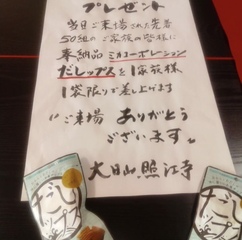 プレゼント
当日ご来場された先着
50組のご家族の皆様に
奉納品 ミカコーポレーション
だしップスを1家族様
1袋限りで差し上げます
"ご来場 ありがとう
ございます"
大日山 照江寺
だし
ップス
だし
ップス